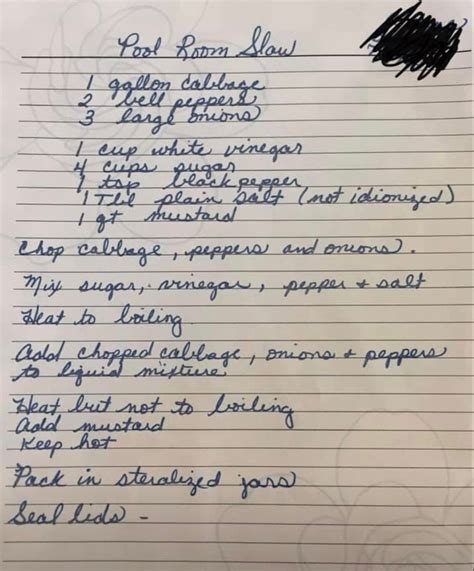 Pool Room Slaw
1 gallon cabbage
2 bell peppers
3 large onions
1 cup white vinegar
4 cups sugar
1 tsp black pepper
1 Tbl plain salt (not idionized)
1 qt mustard
Chop cabbage, peppers and onions.
Mix sugar, vinegar, pepper + salt
Heat to boiling
Add chopped cabbage, onions + peppers
to liquid mixture.
Heat but not to boiling
Add mustard
Keep hot
Pack in steralized jars
Seal lids -